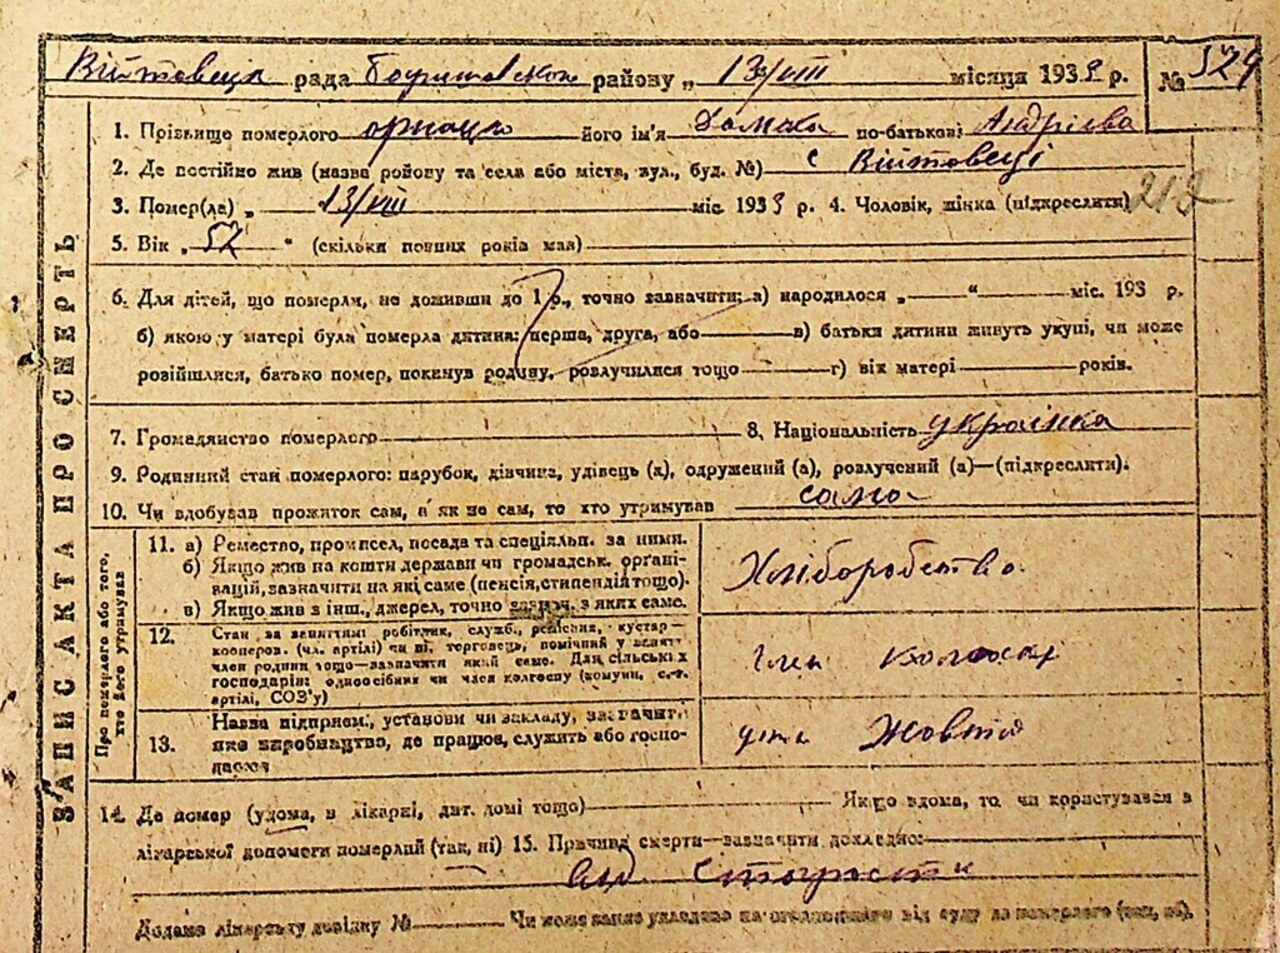 Війтовецк рада Баришівськ району „ 13/VIII місяця 1933 р. № 524
1. Прізвище померлого його ім'я Домаха по-батькові Андрієва
2. Де постійно жив (назва ройону та села або міста, вул., буд. №) с Війтовеці
3. Помер(ла) „ 13/VIII міс. 1933 р. 4. Чоловік, жінка (підкреслити) 212
5. Вік „ 52 “ (скільки повних років мав)
6. Для дітей, що померли, не доживши до 1 р., точно зазначити: а) народилося „ “ міс. 193 р.
б) якою у матері була померла дитина: перша, друга, або в) батьки дитини живуть укупі, чи може
розійшлися, батько помер, покинув родину, розлучилися тощо г) вік матері років.
7. Громадянство померлого 8. Національність українка
9. Родинний стан померлого: парубок, дівчина, удівець (а), одружений (а), розлучений (а)—(підкреслити).
10. Чи здобував прожиток сам, а як не сам, то хто утримував сама
ЗАПИС АКТА ПРО СМЕРТЬ
Про померлого або того,
хто його утримував
11. а) Ремество, промисел, посада та спеціяльн. за ними.
б) Якщо жив на кошти держави чи громадськ. орґані-
зацій, зазначити на які саме (пенсія, стипендія тощо).
в) Якщо жив з інш., джерел, точно зазнач. з яких саме.
Хліборобство
12. Стан за заняттями робітник, служб., ремісник, кустар—
кооперов. (чл. артілі) чи ні, торговець, помічний у занят.
член родини тощо—зазначити який саме. Для сільських
господарів: одноосібник чи член колгоспу (комуни, с.-г.
артілі, СОЗ'у)
член
13. Назва підприєм., установи чи закладу, зазначити
яке виробництво, де працює, служить або госпо-
дарює
Жовтня
14. Де помер (удома, в лікарні, дит. домі тощо) Якщо вдома, то чи користувався з
лікарської допомоги померлий (так, ні) 15. Причина смерти—зазначити докладно:
від старости
Додано лікарську довідку № Чи може бути укладено на підставі від суду за померлого (так, ні).